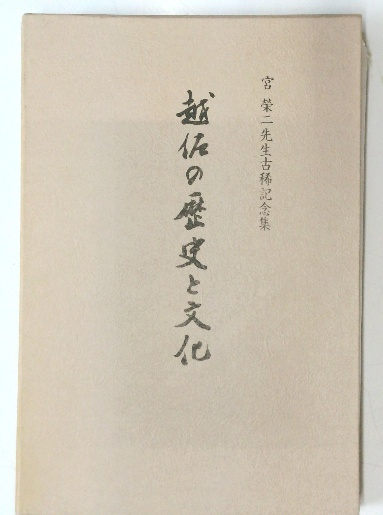 宮 榮二先生古稀記念集
越佐の歴史と文化